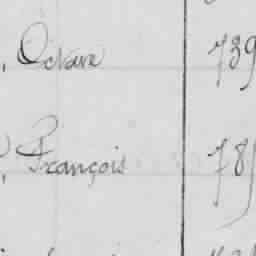 , Octave 739
, François 785